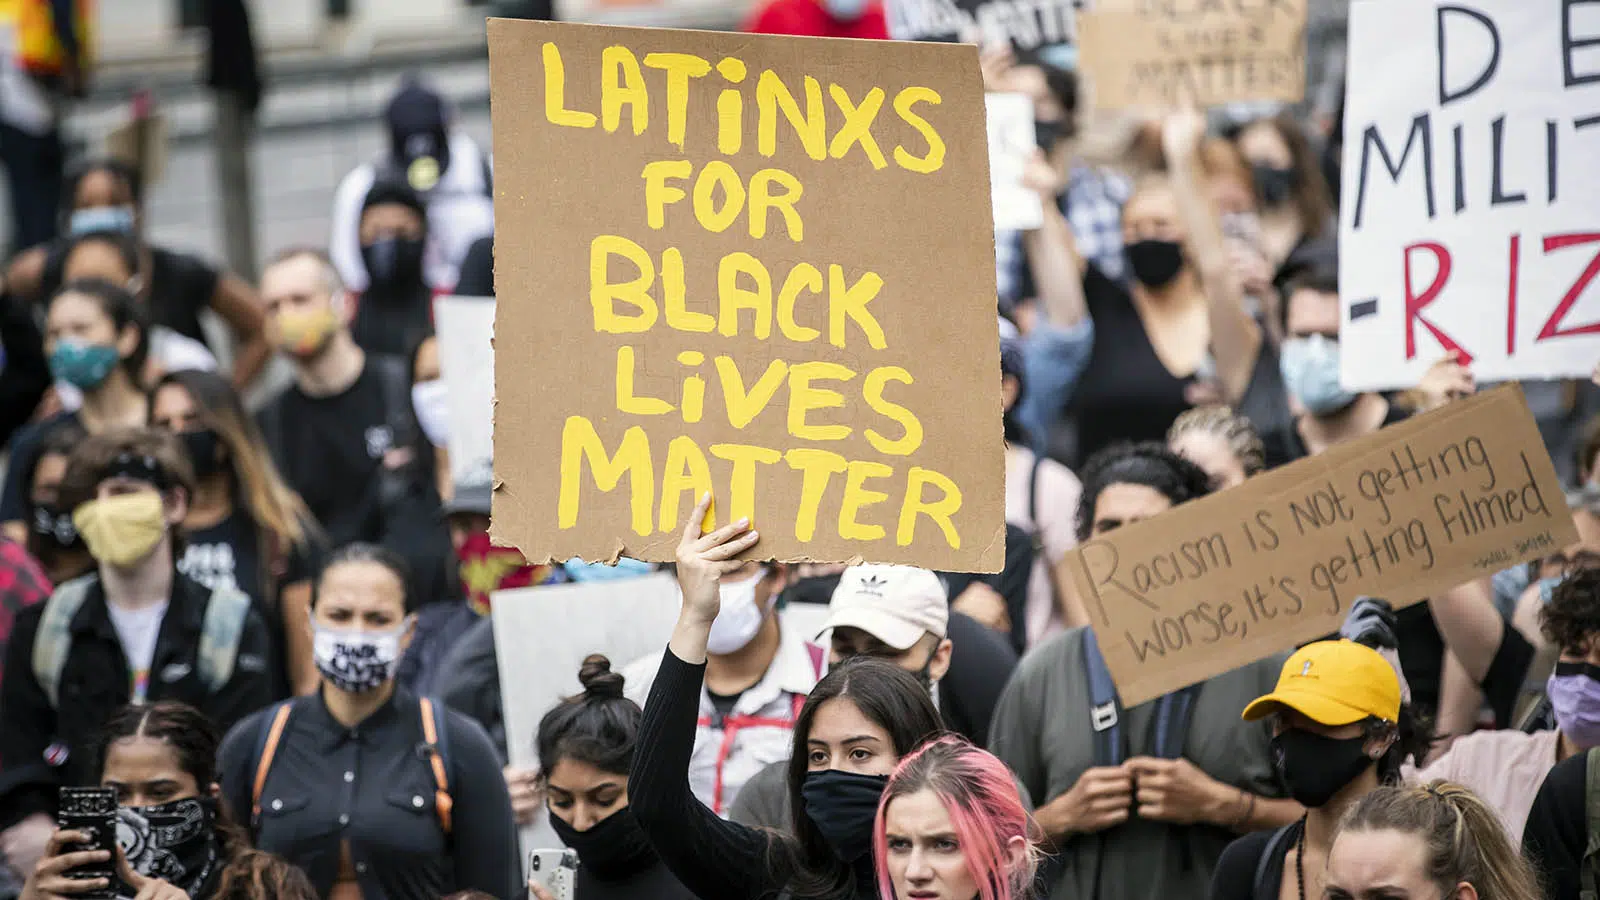 LATiNXS
FOR
BLACK
LiVES
MATTER
BLACK
LIVES
MATTER
DE
MILIT
-RIZ
Racism is not getting
worse, it's getting filmed
-Will Smith
adidas